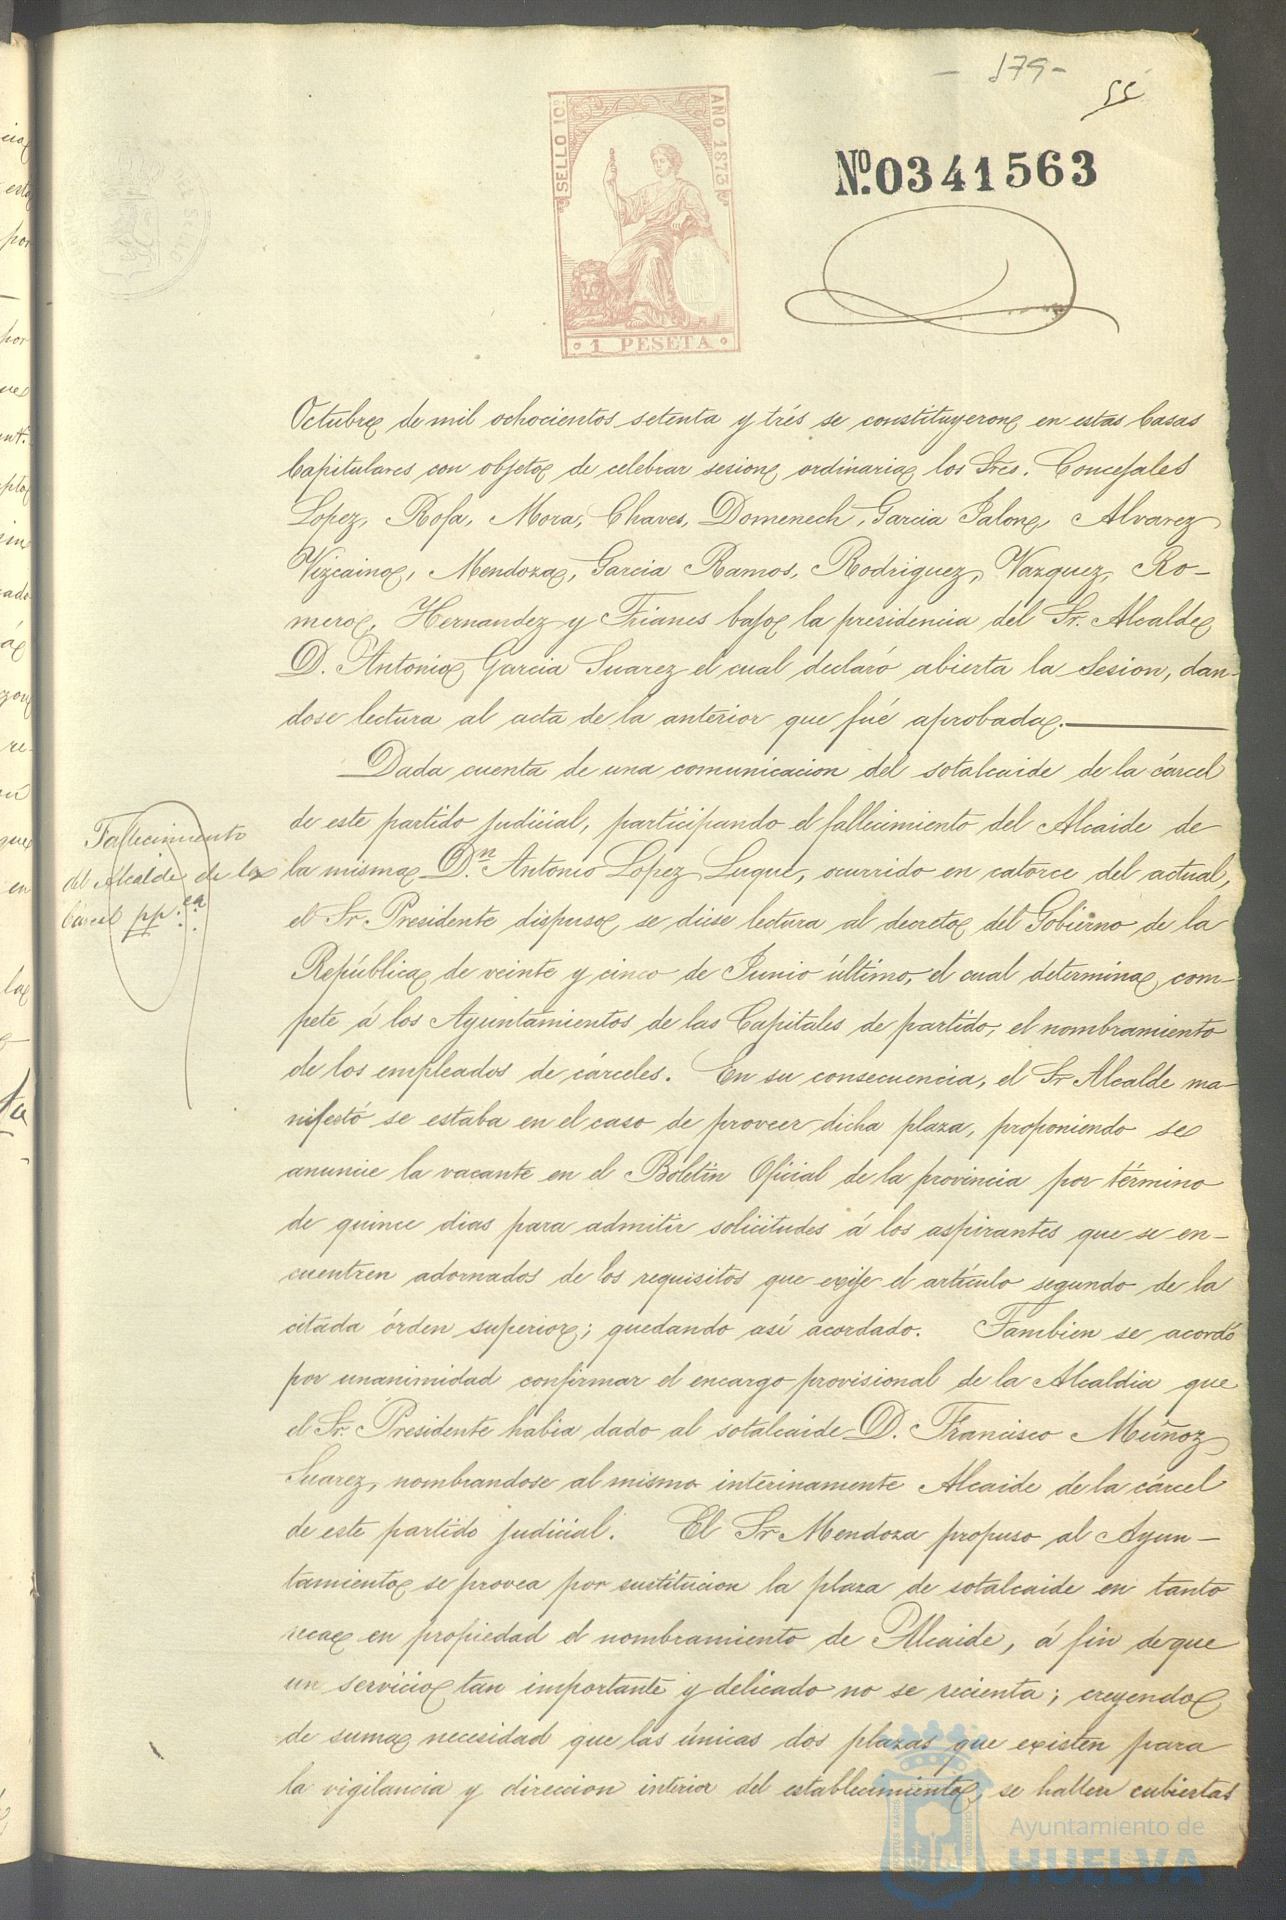 - 179 -
55
SELLO 10º
AÑO 1873
1 PESETA
Nº. 0341563
Octubre de mil ochocientos setenta y trés se constituyeron en estas Casas
Capitulares con objeto de celebrar sesion ordinaria los Sres. Concejales
Lopez, Rofa, Mora, Chaves, Domenech, Garcia Jalon, Alvarez
Vizcaino, Mendoza, Garcia Ramos, Rodriguez, Vazquez, Ro-
mero, Hernandez y Trianes bajo la presidencia del Sr. Alcalde
D. Antonio Garcia Suarez el cual declaró abierta la Sesion, dan-
dose lectura al acta de la anterior que fué aprobada.
Dada cuenta de una comunicacion del sotalcaide de la cárcel
de este partido judicial, participando el fallecimiento del Alcaide de
la misma Dn. Antonio Lopez Luque, ocurrido en catorce del actual,
el Sr. Presidente dispuso se diese lectura al decreto del Gobierno de la
República de veinte y cinco de Junio último, el cual determina com-
pete á los Ayuntamientos de las Capitales de partido, el nombramiento
de los empleados de cárceles. En su consecuencia, el Sr Alcalde ma-
nifestó se estaba en el caso de proveer dicha plaza, proponiendo se
anuncie la vacante en el Boletin Oficial de la provincia por término
de quince dias para admitir solicitudes á los aspirantes que se en-
cuentren adornados de los requisitos que exije el artículo segundo de la
citada órden superior; quedando así acordado. Tambien se acordó
por unanimidad confirmar el encargo provisional de la Alcaldia que
el Sr. Presidente habia dado al sotalcaide D. Francisco Muñoz
Suarez, nombrandose al mismo interinamente Alcaide de la cárcel
de este partido judicial. El Sr Mendoza propuso al Ayun-
tamiento se provea por sustitucion la plaza de sotalcaide en tanto
recae en propiedad el nombramiento de Alcaide, á fin de que
un servicio tan importante y delicado no se recienta; creyendo
de suma necesidad que las únicas dos plazas que existen para
la vigilancia y direccion interior del establecimiento, se hallen cubiertas
Fallecimiento
del Alcaide de la
Cárcel pp.ca
Ayuntamiento de
HUELVA